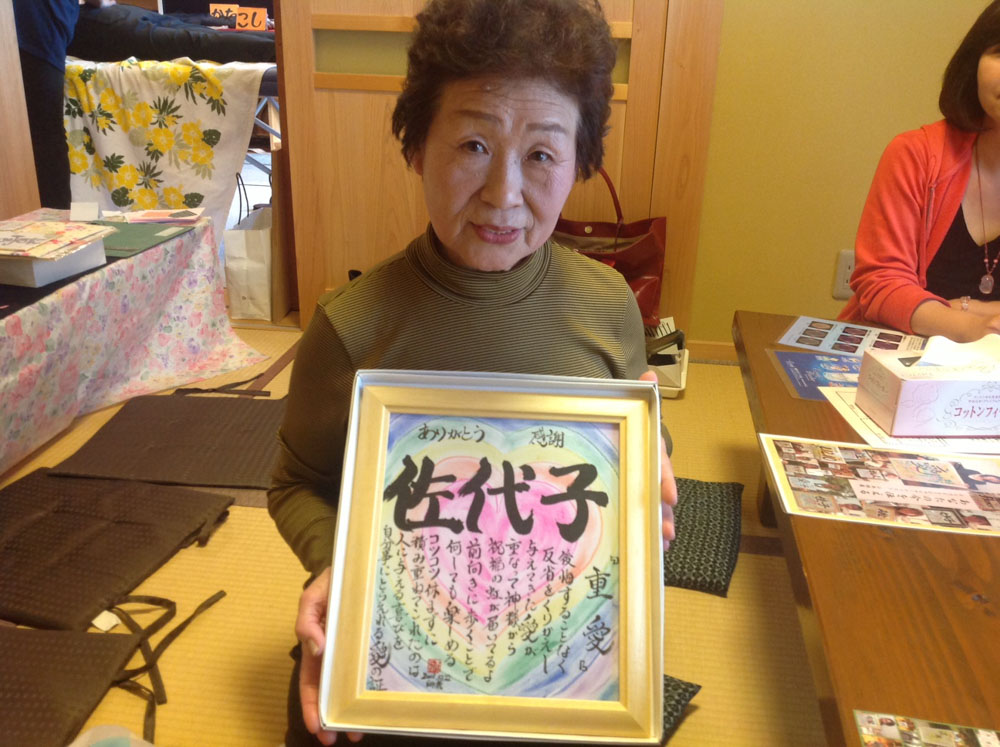 かたこし
ありがとう
感謝
佐代子
"重愛"
後悔することなく
反省をくりかえし
与えてきた愛が
重なって神様から
祝福の虹が届いてるよ
前向きに歩くことで
何しても楽しめる
コツコツ休まずに
積み重ねてこれたのは
人に与える喜びを
自分事にとらえれる愛の証
コットンフィ